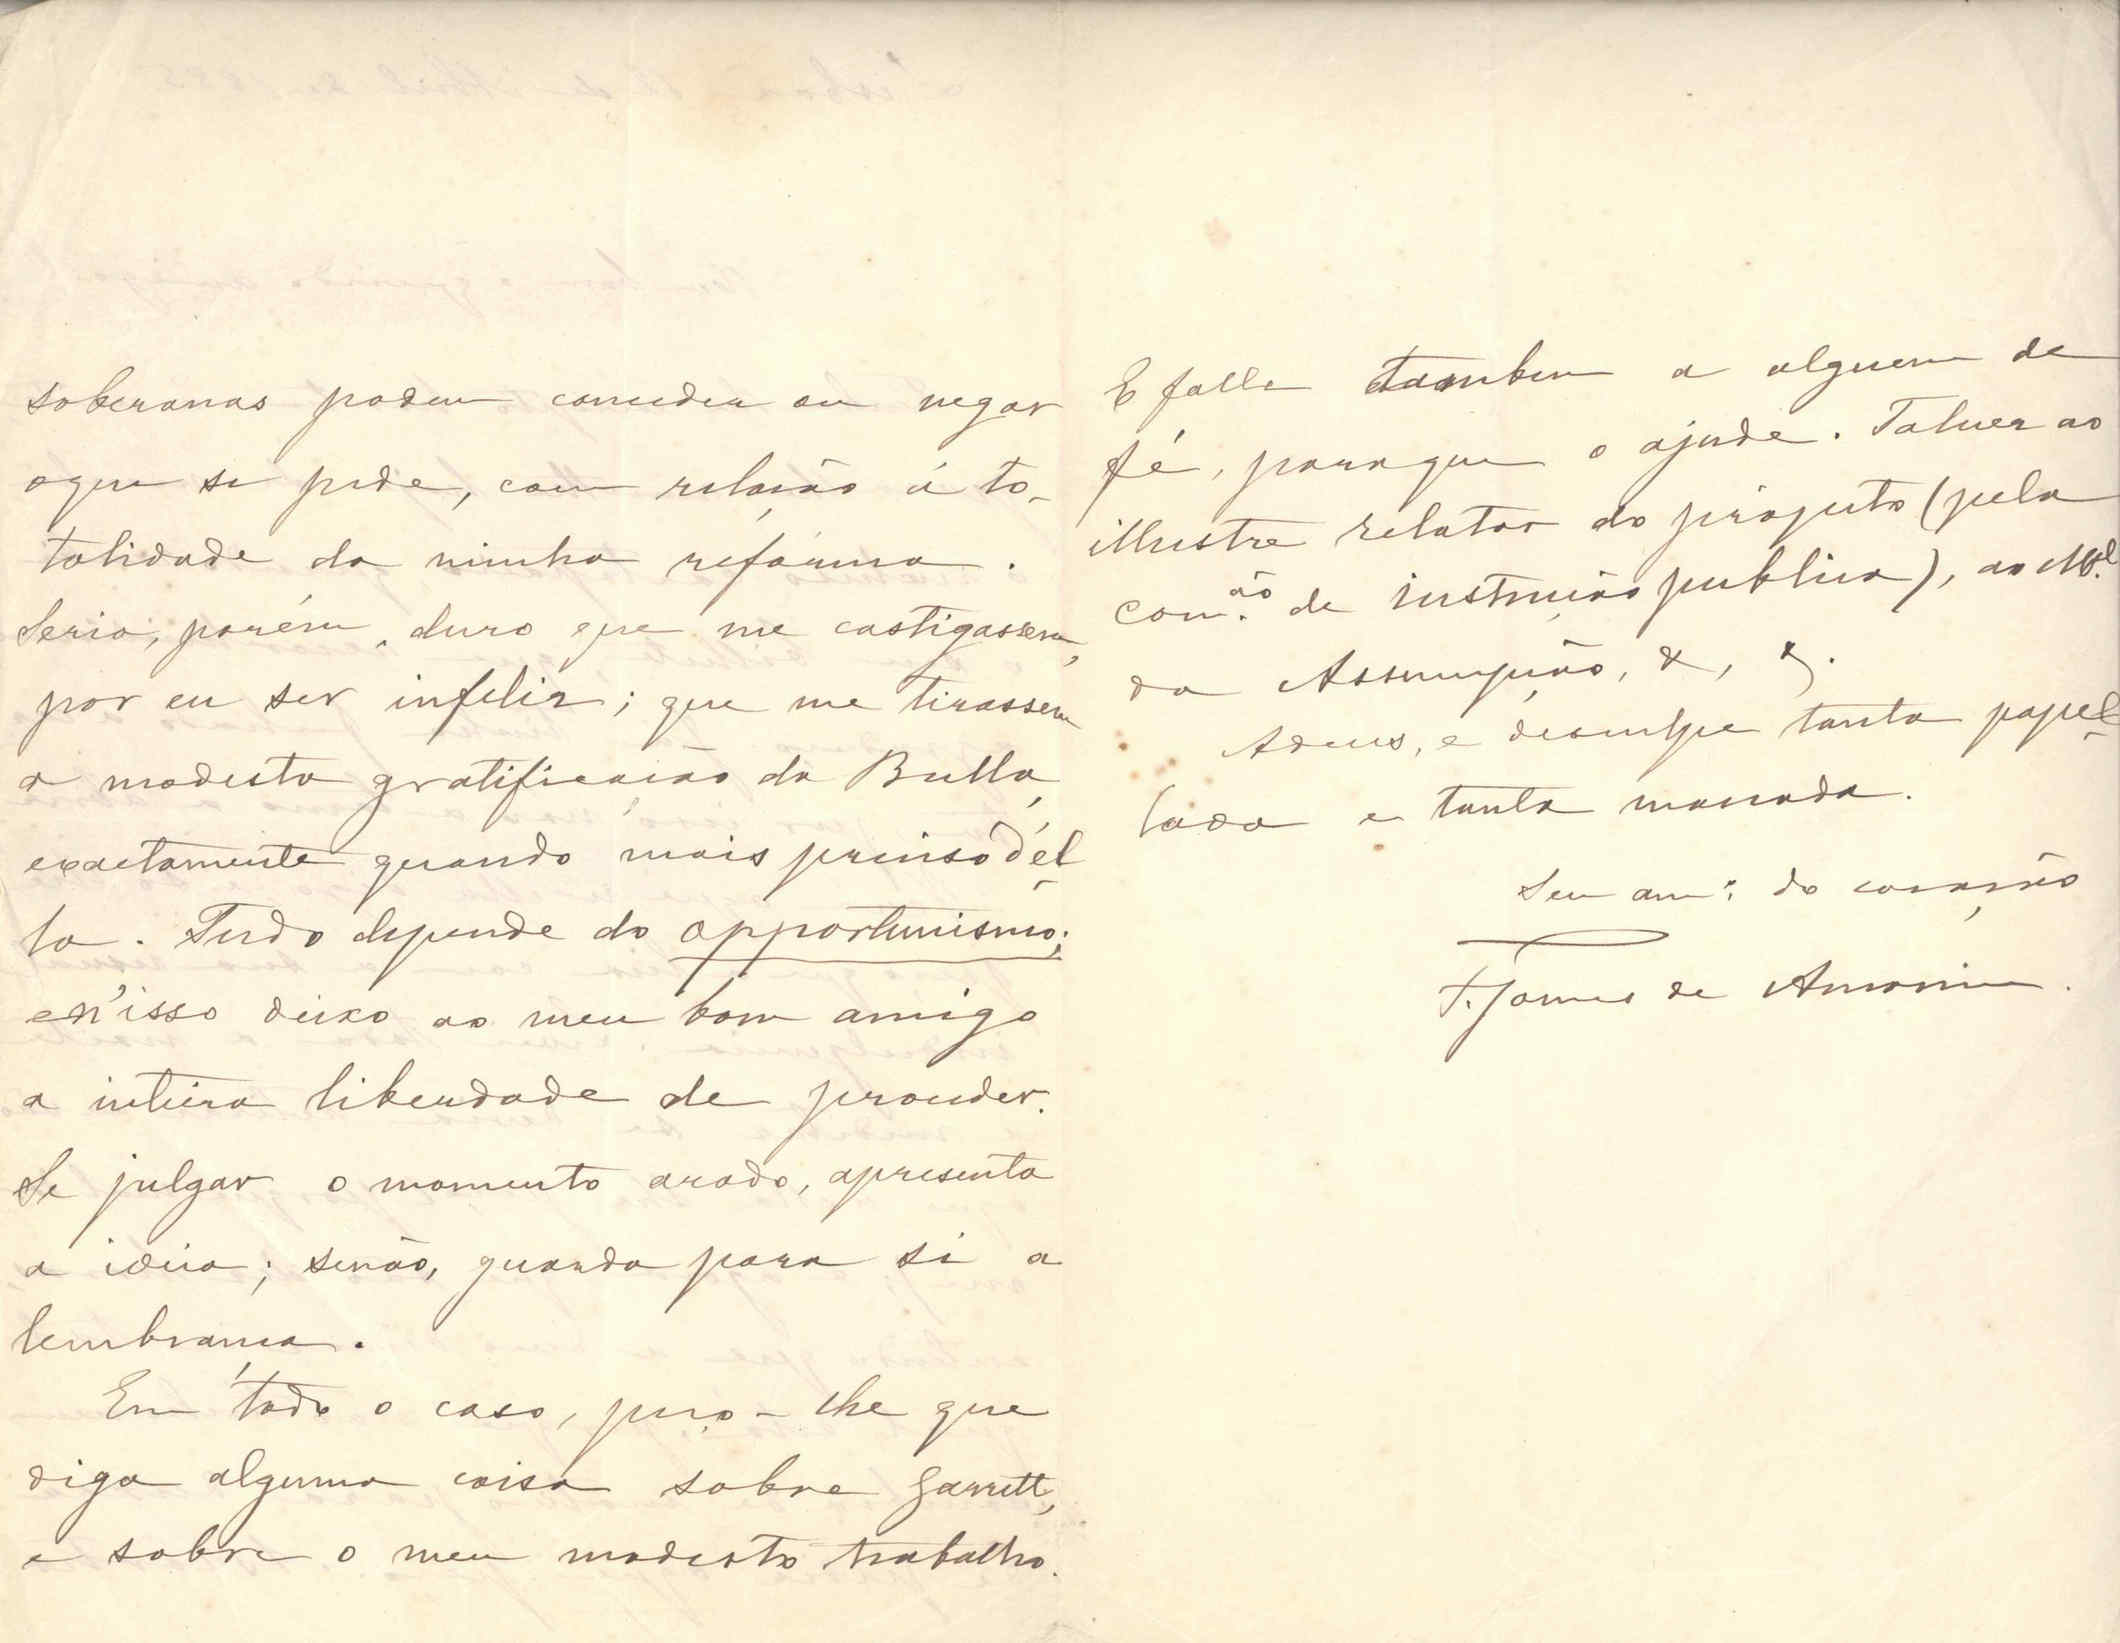 soberanas podem conceder ou negar
o que se pede, com relação á to-
talidade da minha refórma.
Seria, porém, duro que me castigassem,
por eu ser infeliz; que me tirassem
a modesta gratificação da Bulla,
exactamente quando mais preciso d'él-
la. Tudo depende do opportunismo;
e n'isso deixo ao meu bom amigo
a inteira liberdade de proceder.
Se julgar o momento azado, apresenta
a ideia; senão, guarda para si a
lembrança.
Em todo o caso, peço-lhe que
diga alguma coisa sobre Garrett,
e sobre o meu modesto trabalho.
E falle tambem a alguem de
fé, para que o ajude. Talvez ao
illustre relator do projecto (pela
com.ão de instrução publica), ao M.el
da Assumpção, &, &.
Adeus, e desculpe tanta papel-
lada e tanta massada.
Seu am.o do coração
F. Gomes de Amorim.